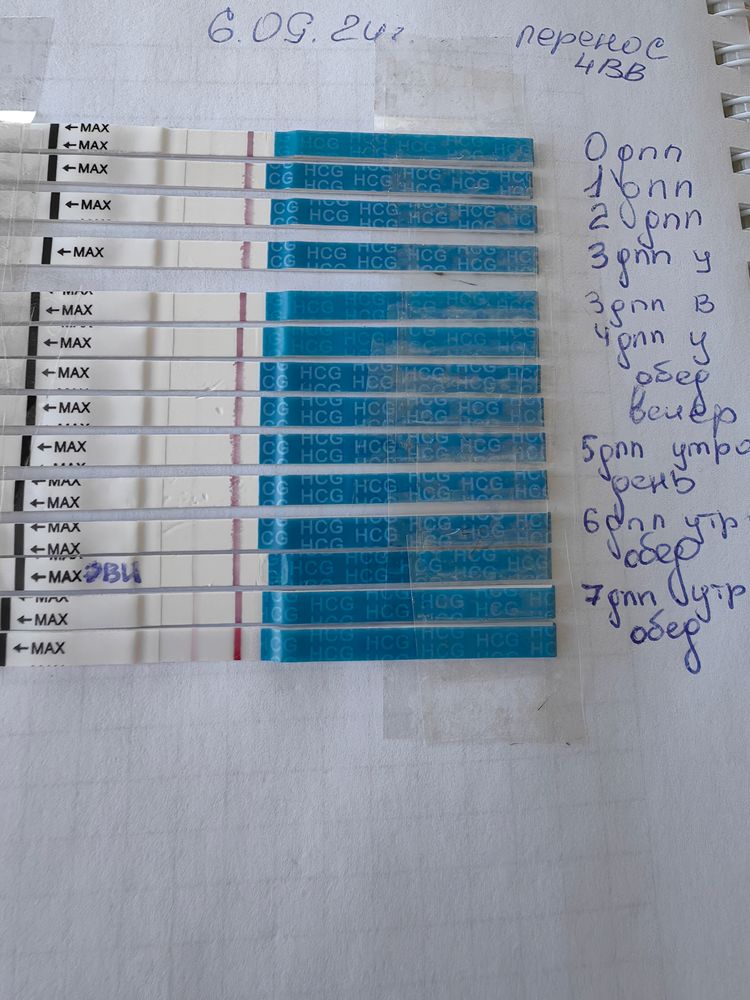 6.09.24г. перенос
4ВВ
←MAX
←MAX
HCG HCG HCG HCG
0 дпп
←MAX
HCG HCG HCG HCG
1 дпп
←MAX
HCG HCG HCG HCG
2 дпп
←MAX
HCG HCG HCG HCG
3 дпп у
←MAX
HCG HCG HCG HCG
3 дпп в
←MAX
HCG HCG HCG HCG
4 дпп у
←MAX
HCG HCG HCG HCG
обед
←MAX
HCG HCG HCG HCG
вечер
←MAX
HCG HCG HCG HCG
5 дпп утро
←MAX
←MAX
HCG HCG HCG HCG
день
←MAX
←MAX
HCG HCG HCG HCG
6 дпп утр
←MAX ЭВИ
HCG HCG HCG HCG
обед
←MAX
←MAX
HCG HCG HCG HCG
7 дпп утр
←MAX
HCG HCG HCG HCG
обед